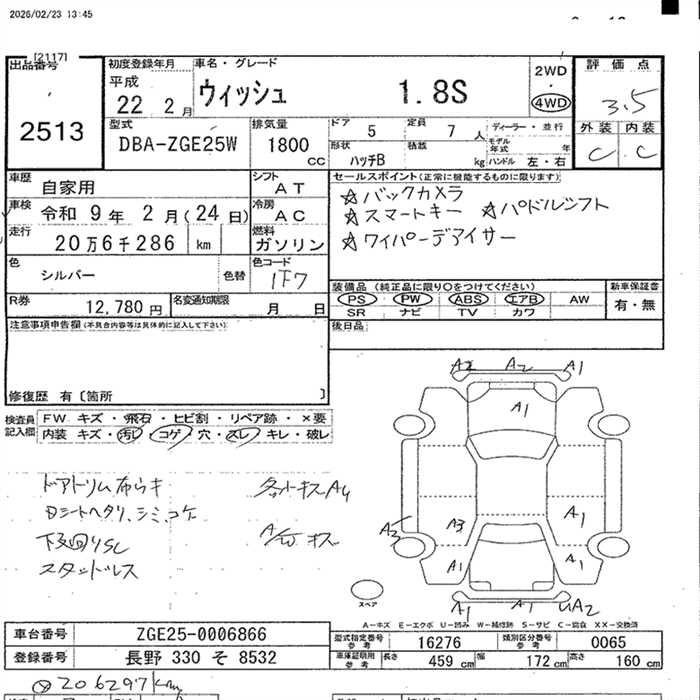 2026/02/23 13:45
[2117]
出品番号
2513
初度登録年月
平成
22 2月
車名・グレード
ウィッシュ 1.8S
2WD
4WD
評価点
3.5
外装 内装
C C
型式
DBA-ZGE25W
排気量
1800 CC
ドア 5
定員 7 人
形状 ハッチB
積載 kg
ディーラー・並行
モデル年式 年
ハンドル 左・右
車歴 自家用
シフト AT
車検 令和 9年 2月(24日)
冷房 AC
走行 20万6千286 km
燃料 ガソリン
色 シルバー
色替
色コード 1F7
R券 12,780円
名変通知期限 月 日
セールスポイント(正常に機能するものに限ります)
☆バックカメラ
☆スマートキー ☆パドルシフト
☆ワイパーデアイサー
装備品 (純正品に限り○をつけてください)
PS PW ABS エアB AW
SR ナビ TV カワ
新車保証書
有・無
後日品
注意事項申告欄(不具合内容等は具体的に記入して下さい)
修復歴 有〔箇所 〕
検査員記入欄
FW キズ・飛石・ヒビ割・リペア跡・×要
内装 キズ・汚レ・コゲ・穴・スレ・キレ・破レ
ドアトリム
シートヘタリ、シミ、コゲ
下回りSC
スタッドレス
A2 A2 A1
A1
A3 A3 A1
A1 A1
A1 A1 UA2
スペア
A-キズ E-エクボ U-凹み W-補修跡 S-サビ C-腐食 XX-交換済
車台番号 ZGE25-0006866
登録番号 長野 330 そ 8532
型式指定番号参考 16276
類別区分番号参考 0065
車庫証明用参考 長さ 459 cm 幅 172 cm 高さ 160 cm
206297km